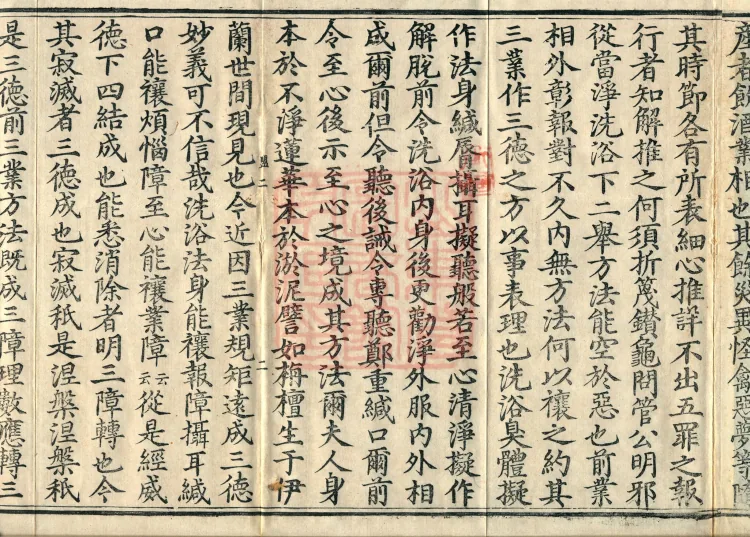 産者飲酒業相也其餘災異怪禽惡夢等隨
其時節各有所表細心推詳不出五罪之報
行者知解推之何須折蔑鑚龜問管公明邪
從當淨洗浴下二舉方法能空於惡也前業
相外彰報對不久内無方法何以禳之約其
三業作三德之方以事表理也洗浴臭體擬
作法身緘脣攝耳擬聽般若至心清淨擬作
解脫前令洗浴内身後更勸淨外服内外相
成爾前但令聽後誡令專聽鄭重緘口爾前
令至心後示至心之境成其方法爾夫人身
本於不淨蓮華本於淤泥譬如栴檀生于伊
蘭世間現見也今近因三業規矩遠成三德
妙義可不信哉洗浴法身能禳報障攝耳緘
口能禳煩惱障至心能禳業障云云從是經威
德下四結成也能悉消除者明三障轉也令
其寂滅者三德成也寂滅秖是涅槃涅槃秖
是三德前三業方法既成三障理數應轉三